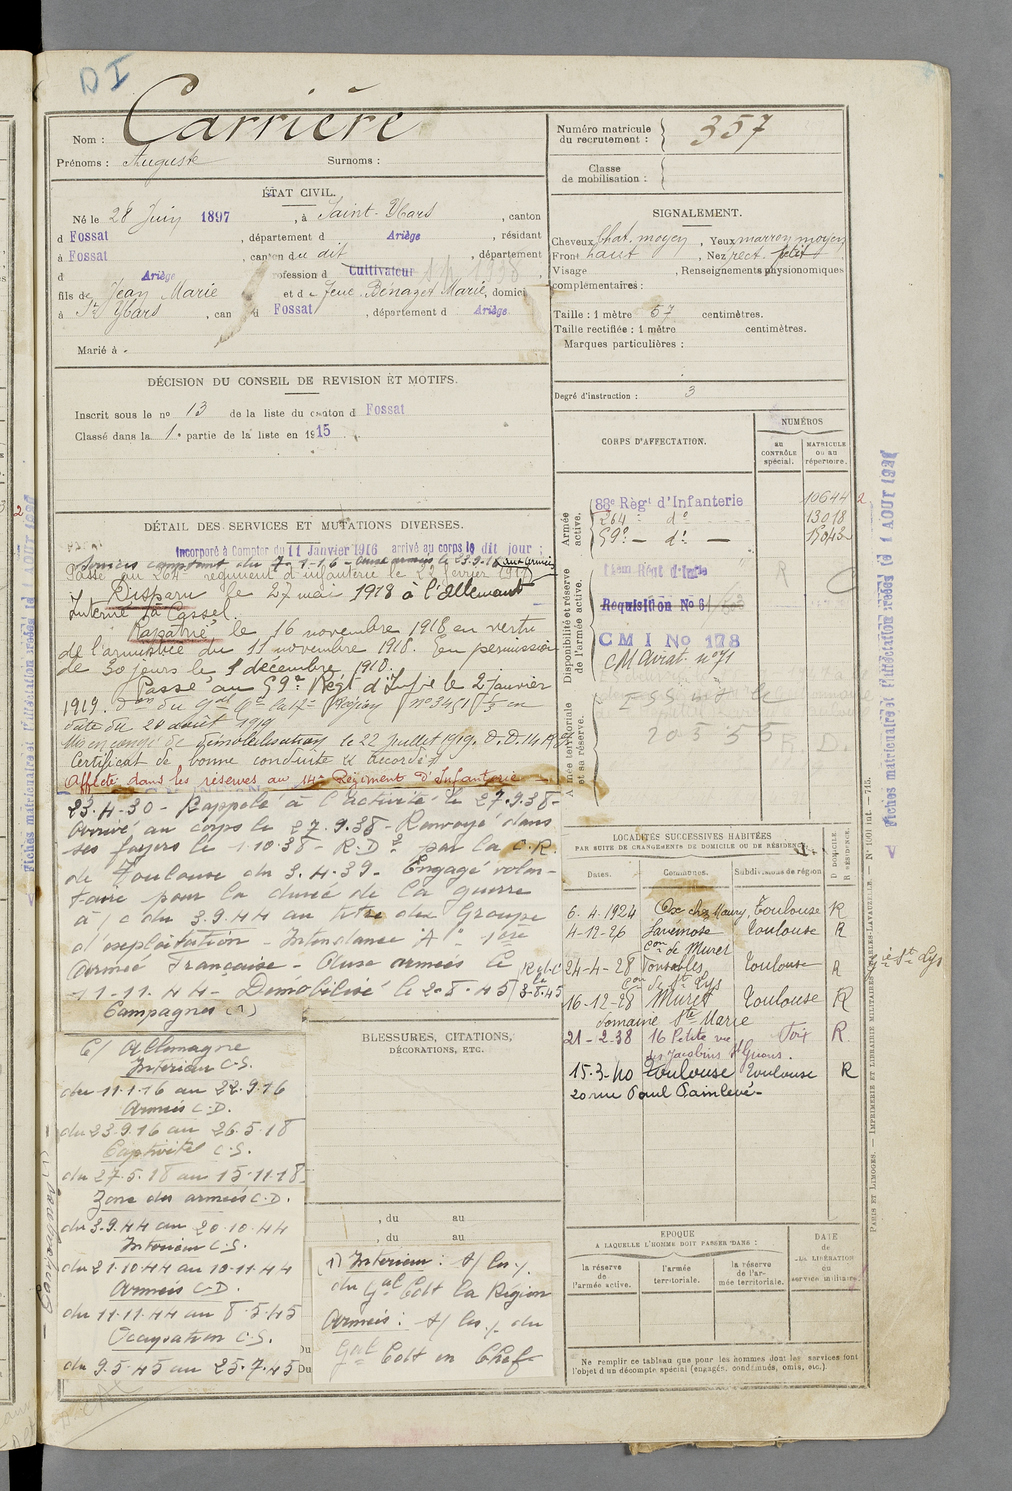 DI
Nom : Carrière
Prénoms : Auguste Surnoms :
Numéro matricule du recrutement : 357
Classe de mobilisation :
ÉTAT CIVIL.
Né le 28 Juin 1897, à Saint-Ybars, canton
d Fossat, département d Ariège, résidant
à Fossat, canton du dit, département
d Ariège profession d Cultivateur
fils de Jean Marie et de feue Bénazet Marie, domici
à St Ybars, can d Fossat, département d Ariège
Marié à
SIGNALEMENT.
Cheveux chat. moyen, Yeux marron moyen
Front haut, Nez rect. petit
Visage, Renseignements physionomiques
complémentaires :
Taille : 1 mètre 57 centimètres.
Taille rectifiée : 1 mètre centimètres.
Marques particulières :
Degré d'instruction : 3
DÉCISION DU CONSEIL DE REVISION ET MOTIFS.
Inscrit sous le no 13 de la liste du canton d Fossat
Classé dans la 1e partie de la liste en 1915
DÉTAIL DES SERVICES ET MUTATIONS DIVERSES.
Incorporé à Compter du 11 Janvier 1916 arrivé au corps le dit jour ;
Passé au 264e régiment d'infanterie le 22 février 1918
Disparu le 27 mai 1918 à l'Allemant
Interné à Cassel.
Rapatrié le 16 novembre 1918 en vertu
de l'armistice du 11 novembre 1918. En permission
de 30 jours le 1 décembre 1918.
Passé au 59e Régt d'Infie le 2 Janvier
1919.
date du 20 août 1919
Mis en congé de démobilisation le 22 juillet 1919.
Certificat de bonne conduite accordé
Affecté dans les réserves au 14e Régiment d'Infanterie
23.4.30 - Rappelé à l'activité le 27.9.38 -
Arrivé au corps le 27.9.38 - Renvoyé dans
ses foyers le 1.10.38 - R.D. par la C.R.
de Toulouse du 3.4.39 - Engagé volon-
taire pour la durée de la guerre
à/c du 3.9.44 au titre du Groupe
d'exploitation - Intendance "A" - 1ère
Armée Française - Aux armées le
11-11.44 - Démobilisé le 2.8.45
Campagnes (1)
C/ Allemagne
Intérieur C.S.
du 11.1.16 au 22.9.16
Armées C.D.
du 23.9.16 au 26.5.18
Captivité C.S.
du 27.5.18 au 15.11.18
Zone des armées C.D.
du 3.9.44 au 20.10.44
Intérieur C.S.
du 21.10.44 au 10.11.44
Armées C.D.
du 11.11.44 au 8.5.45
Occupation C.S.
du 9.5.45 au 25.7.45
BLESSURES, CITATIONS,
DÉCORATIONS, ETC.
, du au
, du au
Du
Du
1) Intérieur :
du Gal Cdt la Région
Armées : du
Gal Cdt en Chef
CORPS D'AFFECTATION.
NUMÉROS
AU CONTRÔLE spécial.
MATRICULE ou au répertoire.
Armée active.
88e Régt d'Infanterie 10644
264 - do 13018
59e - do - 15043
Disponibilité et réserve de l'armée active.
14em Régt d'Infie
R
Réquisition No 6
CMI No 178
CM Aviat. no 71
Armée territoriale et sa réserve.
LOCALITÉS SUCCESSIVES HABITÉES
PAR SUITE DE CHANGEMENTS DE DOMICILE OU DE RÉSIDENCE.
Dates. Communes. Subdivisions de région D DOMICILE. R RÉSIDENCE.
6.4.1924 chez Maury, Toulouse R
4-12-26 Lavernose Toulouse R
con de Muret
24-4-28 Toulouse R
con de Ste Lys
16-12-28 Muret Toulouse R
domaine Ste Marie
21-2-38 16 Petite rue Foix R
des Jacobins St Girons.
15.3-40 Toulouse Toulouse R
20 rue Paul Painlevé -
EPOQUE
A LAQUELLE L'HOMME DOIT PASSER DANS :
la réserve de l'armée active.
l'armée territoriale.
la réserve de l'armée territoriale.
DATE de LA LIBÉRATION du service militaire.
Ne remplir ce tableau que pour les hommes dont les services font
l'objet d'un décompte spécial (engagés, condamnés, omis, etc.)